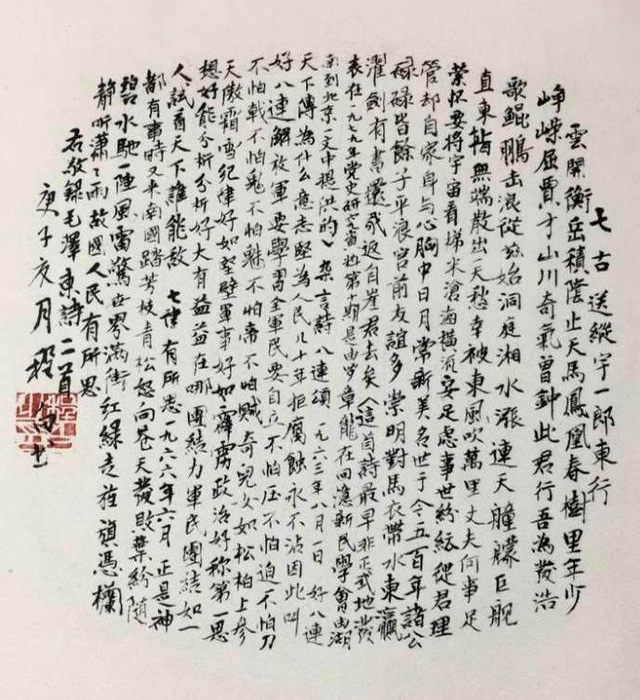 七古送縱宇一郎東行
雲開衡岳積陰止天馬鳳凰春樹里年少
崢嶸屈賈才山川奇氣曾鍾此君行吾為發浩
歌鯤鵬击浪從茲始洞庭湘水漲連天艟艨巨艦
直東指無端散出一天愁幸被東風吹萬里丈夫何事足
縈怀要將宇宙看稊米滄海橫流安足慮事世紛紜從君理
管却自家身与心胸中日月常新美名世于今五百年諸公
碌碌皆餘子平浪宮前友誼多崇明對馬衣帶水東瀛
濯劍有書還我返自崖君去矣（這首詩最早非正式地發
表在一九七九年党史研究資料第十期是由罗章龍在回憶新民學會由湖
南到北京一文中提供的）杂言詩八連頌一九六三年八月一日好八連
天下傳為什么意志堅為人民几十年拒腐蝕永不沾因此叫
好八連解放軍要學習全軍民要自立不怕压不怕迫不怕刀
不怕戟不怕鬼不怕魅不怕帝不怕賊奇兒女如松柏上參
天傲霜雪紀律好如堅壁軍事好如霹靂政治好称第一思
想好能分析分析好大有益益在哪團結力軍民團結如一
人試看天下誰能敵 七律有所思一九六六年六月正是神
都有事時又來南國踏芳枝青松怒向苍天發敗葉紛随
碧水馳一陣風雷驚世界滿街紅綠走旌旗憑欄
靜听瀟々雨故國人民有所思
右敬錄毛澤東詩二首
庚子亥月